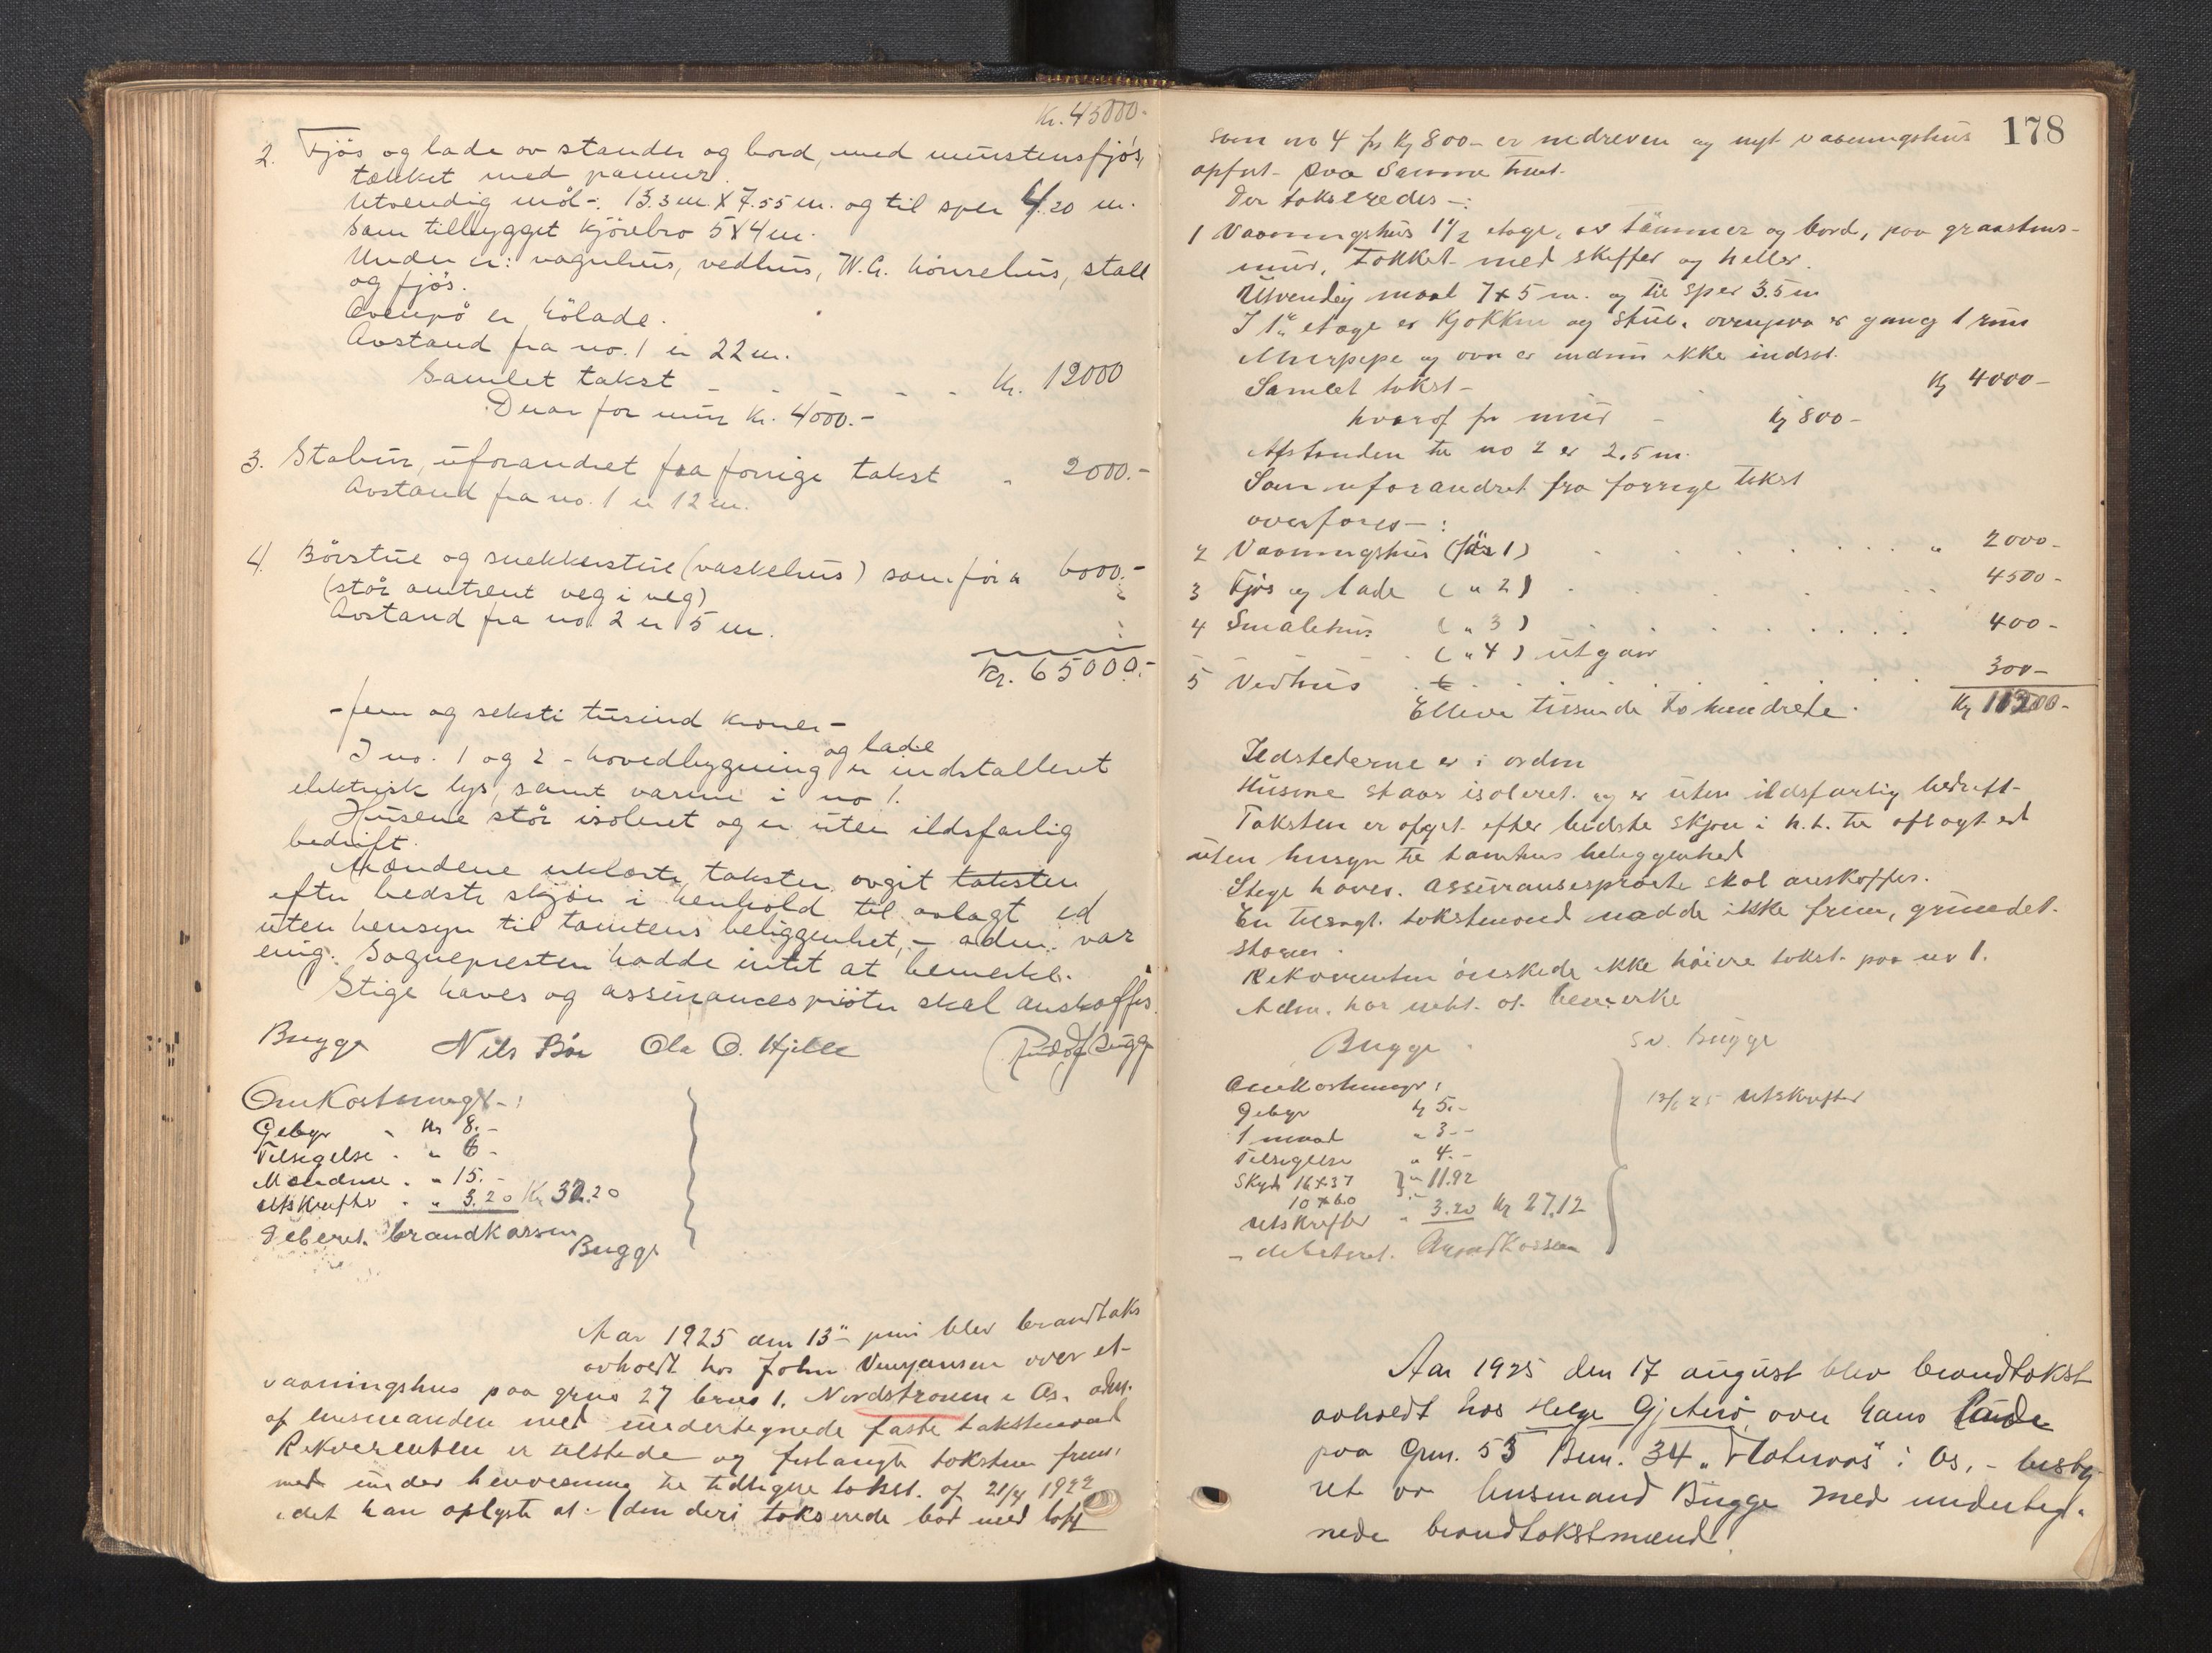 Kr. 45000.-
2. Fjös og lade av stander og bord, med murstensfjös,
tækket med panner.
Utvendig mål-: 13.3 m. X 7.55 m. og til sper 4.20 m.
Sam tilbygget kjörebro 5X4 m.
Under er: vognhus, vedhus, W.C. hönsehus, stall
og fjös.
Ovenpå er hölade.
Avstand fra no. 1 er 22 m.
Samlet takst - - - - - Kr. 12000
Derav for mur Kr. 4000.-
3. Stabur, uforandret fra forrige takst " 2000.-
Avstand fra no. 1 er 12 m.
4. Börstue og snekkerstue (vaskehus) som för " 6000.-
(står omtrent veg i veg)
Avstand fra no. 2 er 5 m.
Kr. 65000.-
-fem og seksti tusind kroner-
og lade
I no. 1 og 2 - hovedbygning er indstalleret
elektrisk lys, samt varme i no 1.
Husene står isoleret og er uten ildsfarlig
bedrift.
Mændene erklærte taksten avgit taksten
efter bedste skjön i henhold til avlagt ed
uten hensyn til tomtens beliggenhet, - adm. var
enig. Sognepresten hadde intet at bemerke.
Stige haves og assurancespröite skal anskaffes.
Bugge Nils Böe Ole O. Hjelle Rudolf Bugge
Omkostninger-:
Gebyr " Kr 8.-
Tilsigelse . " 6 -
Mændene . " 15.-
Utskrifter . " 3.20 Kr 32.20
Deberet. brandkassen
Bugge
Aar 1925 den 13de juni blev brandtakst
avholdt hos John Vinjansen over et
vaaningshus paa grno 27 brno 1, Nordstronen i Os. adm.
af lensmanden med undertegnede faste takstmænd
Rekvirenten er tilstede og forlangte taksten frem-
met under henvisning til tidligere takst. af 21/4 1922
idet han oplyste at (den deri takserede bod med loft
178
som no 4 for Kr 800- er nedreven og nyt vaaningshus
opfört paa samme tomt.
Der takseredes-:
1 Vaaningshus 1 1/2 etage, av tömmer og bord, paa graastens-
mur, tækket med skiffer og heller.
Utvendig maal 7 x 5 m. og til sper 3.5 m
I 1ste etage er kjökken og stue. ovenpaa er gang 1 rum
Murpipe og ovn er endnu ikke indsat.
Samlet takst - Kr 4000-
hvoraf for mur - Kr 800-
Afstanden til no 2 er 2.5 m.
Som uforandret fra forrige takst
overföres-:
2 Vaaningshus (för 1) . . . . . . " 2000-
3 Fjös og lade ( " 2) . . . . . . 4500-
4 Smalehus ( " 3) . . . . . . 400-
( " 4) utgaar
5 Vedhus . . . . . . 300-
Elleve tusinde to hundrede. Kr 11200-
Ildstederne er i orden
Husene staar isoleret. og er uten ildsfarlig bedrift-
Taksten er afgit efter bedste skjön i h.t. til aflagt ed
uten hensyn til tomtens beliggenhed
Stige haves. Assuransespröite skal anskaffes.
En tilsagt. takstmand nadde ikke frem, grundet.
storm.
Rekvirenten önskede ikke höiere takst. paa no 1.
Adm. har intet. at. bemerke
Bugge S.N. Bugge
Omkostninger:
Gebyr Kr 5.-
1 mand " 3.-
Tilsigelse " 4.-
Skyds 16 x 37
10 x 60 } " 11.92
Utskrifter " 3.20 Kr 27.12
- debiteret. Brandkassen
13/6 25 utskrifter
Aar 1925 den 17 august blev brandtakst
avholdt hos Helge Gjeterö over hans
paa Gnr. 53 Bnr. 34 "Flatenös" i Os, - besty-
ret av lensmand Bugge med underteg-
nede brandtakstmænd.